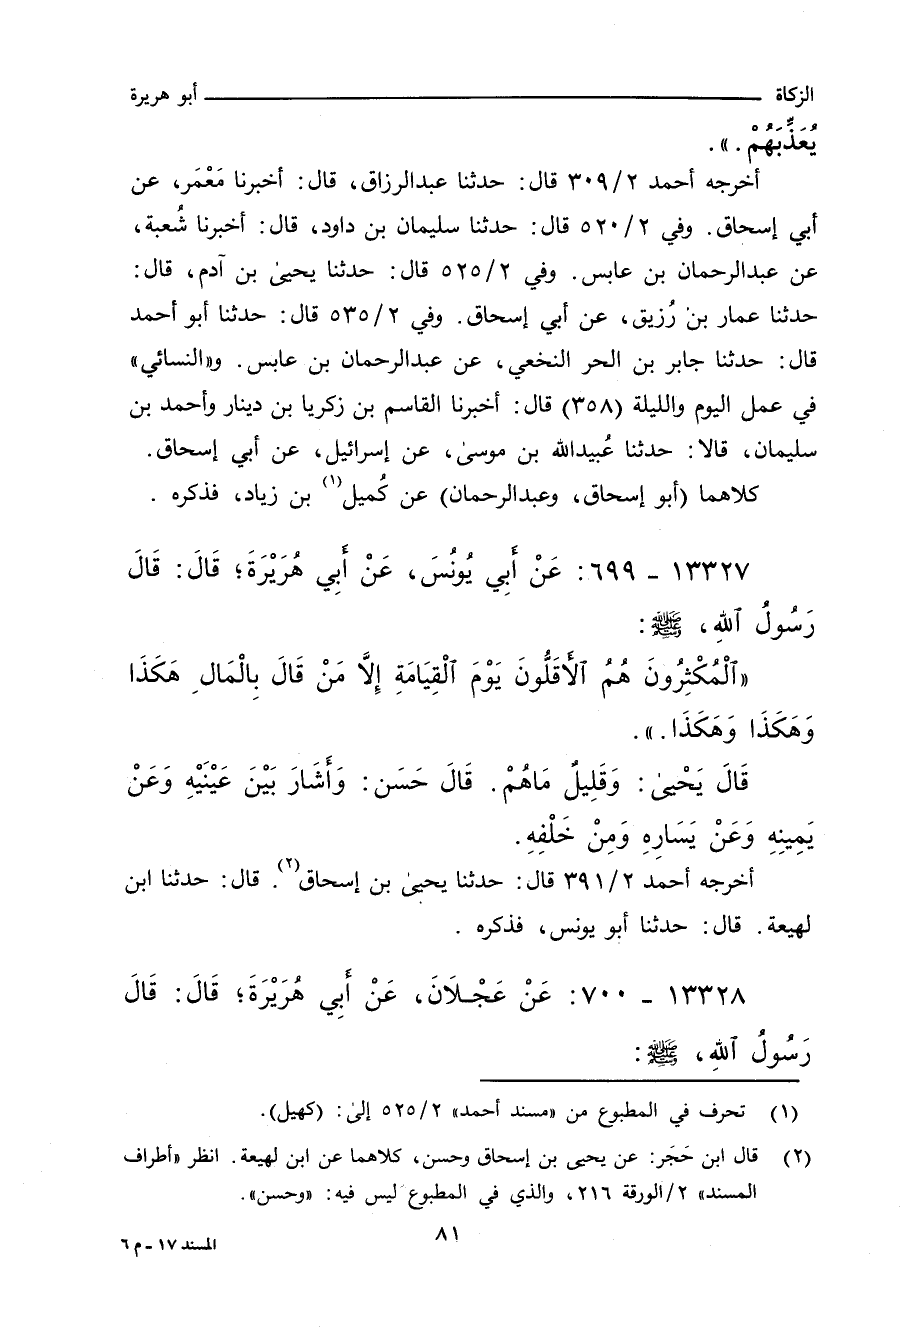 الزكاة ــــــــــ أبو هريرة
يُعَذِّبَهُمْ . ».
أخرجه أحمد ٣٠٩/٢ قال: حدثنا عبدالرزاق، قال: أخبرنا مَعْمَر، عن
أبي إسحاق. وفي ٥٢٠/٢ قال: حدثنا سليمان بن داود، قال: أخبرنا شُعبة،
عن عبدالرحمان بن عابس. وفي ٥٢٥/٢ قال: حدثنا يحيىٰ بن آدم، قال:
حدثنا عمار بن رُزيق، عن أبي إسحاق. وفي ٥٣٥/٢ قال: حدثنا أبو أحمد
قال: حدثنا جابر بن الحر النخعي، عن عبدالرحمان بن عابس. و«النسائي»
في عمل اليوم والليلة (٣٥٨) قال: أخبرنا القاسم بن زكريا بن دينار وأحمد بن
سليمان، قالا: حدثنا عُبيدالله بن موسىٰ، عن إسرائيل، عن أبي إسحاق.
كلاهما (أبو إسحاق، وعبدالرحمان) عن كُميل(١) بن زياد، فذكره .
١٣٣٢٧ ـ ٦٩٩: عَنْ أَبِي يُونُسَ، عَنْ أَبِي هُرَيْرَةَ؛ قَالَ: قَالَ
رَسُولُ ٱللهِ، ﷺ:
«ٱلْمُكْثِرُونَ هُمُ ٱلْأَقَلُّونَ يَوْمَ ٱلْقِيَامَةِ إِلَّا مَنْ قَالَ بِالْمَالِ هَكَذَا
وَهَكَذَا وَهَكَذَا. ».
قَالَ يَحْيىٰ: وَقَلِيلٌ مَاهُمْ. قَالَ حَسَن: وَأَشَارَ بَيْنَ عَيْنَيْهِ وَعَنْ
يَمِينِهِ وَعَنْ يَسَارِهِ وَمِنْ خَلْفِهِ.
أخرجه أحمد ٣٩١/٢ قال: حدثنا يحيىٰ بن إسحاق(٢). قال: حدثنا ابن
لهيعة. قال: حدثنا أبو يونس، فذكره .
١٣٣٢٨ ـ ٧٠٠: عَنْ عَجْلَانَ، عَنْ أَبِي هُرَيْرَةَ؛ قَالَ: قَالَ
رَسُولُ ٱللهِ، ﷺ:
(١) تحرف في المطبوع من «مسند أحمد» ٥٢٥/٢ إلىٰ: (كهيل).
(٢) قال ابن حَجَر: عن يحيى بن إسحاق وحسن، كلاهما عن ابن لهيعة. انظر «أطراف
المسند» ٢/الورقة ٢١٦، والذي في المطبوع ليس فيه: «وحسن».
٨١
المسند ١٧ ـ م ٦